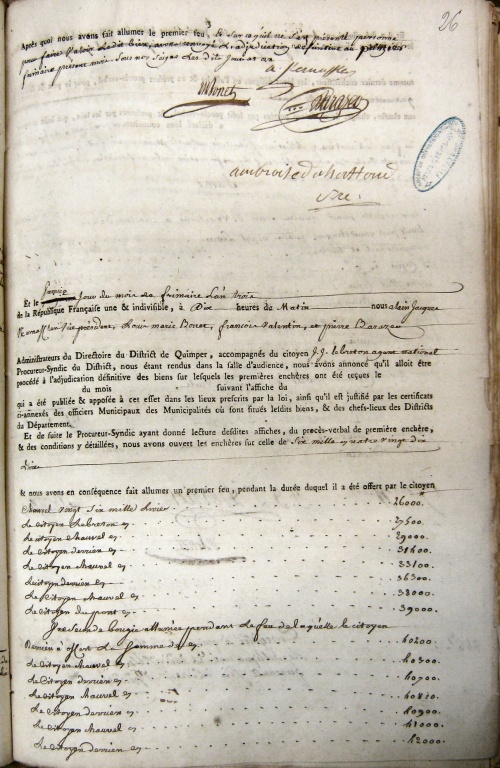 26
3
Après quoi nous avons fait allumer le premier feu, & sur ce qu'il ne s'est présenté personne
pour faire valoir ledit bien, avons renvoyé l'adjudication définitive au
frimaire présent mois sous nos seings lesdits jour et an
Bonet
ambroise duhaffond
Sre.
Et le jour du mois de frimaire L'an trois
de la République Française une & indivisible, à Dix heures de Matin nous alain jacques
vice président, Louis marie Bonet, françois Valentin, et pierre Barazer
Administrateurs du Directoire du District de Quimper, accompagnés du citoyen J.J. le breton agent national
Procureur-Syndic du District, nous étant rendus dans la salle d'audience, nous avons annoncé qu'il alloit être
procédé à l'adjudication définitive des biens sur lesquels les premières enchères ont été reçues le
du mois suivant l'affiche du
qui a été publiée & apposée à cet effet dans les lieux prescrits par la loi, ainsi qu'il est justifié par les certificats
ci-annexés des officiers Municipaux des Municipalités où sont situés lesdits biens, & des chefs-lieux des Districts
du Département.
Et de suite le Procureur-Syndic ayant donné lecture desdites affiches, du procès-verbal de première enchère,
& des conditions y détaillées, nous avons ouvert les enchères sur celle de Six mille quatre vingt dix
Livres
& nous avons en conséquence fait allumer un premier feu, pendant la durée duquel il a été offert par le citoyen
Mauvel vingt Six mille Livres 26000.
Le citoyen Lebreton 27500.
Le citoyen Mauvel 29000.
Le citoyen derrien 31600.
Le citoyen Mauvel 33100.
Le citoyen derrien 36300.
Le citoyen Mauvel 38000.
Le citoyen du pont 39000.
Seconde bougie allumée pendant le feu de laquelle le citoyen
Derrien a offert la Somme de 40200.
Le citoyen Mauvel 40500.
Le citoyen derrien 40700.
Le citoyen Mauvel 40820.
Le citoyen derrien 40900.
Le citoyen Mauvel 41000.
Le citoyen derrien 42000.